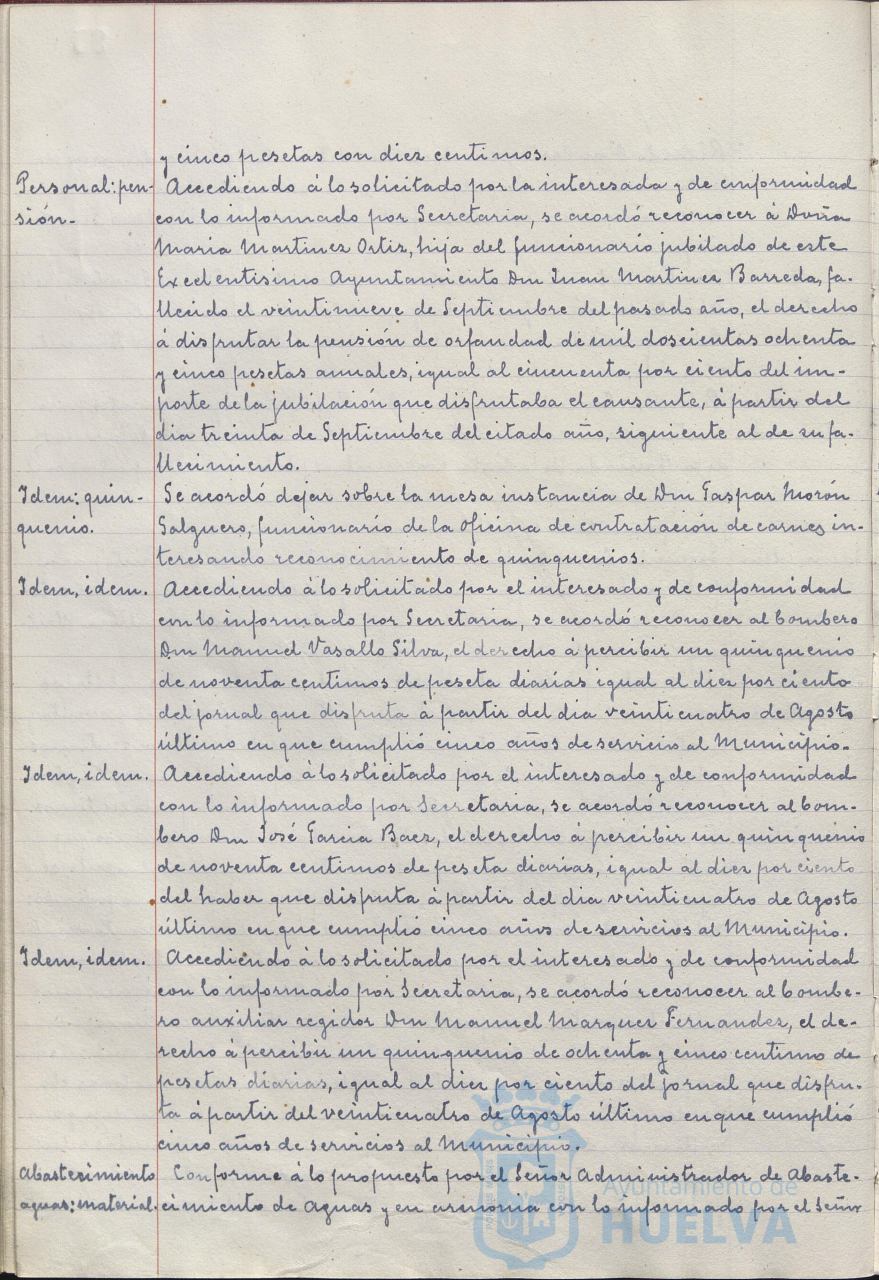 y cinco pesetas con diez centimos.
Personal: pen-
sión.-
Accediendo á lo solicitado por la interesada y de conformidad
con lo informado por Secretaria, se acordó reconocer á Doña
Maria Martinez Ortiz, hija del funcionario jubilado de este
Excelentisimo Ayuntamiento Don Juan Martinez Barreda, fa-
llecido el veintinueve de Septiembre del pasado año, el derecho
á disfrutar la pensión de orfandad de mil doscientas ochenta
y cinco pesetas anuales, igual al cincuenta por ciento del im-
porte de la jubilación que disfrutaba el causante, á partir del
dia treinta de Septiembre del citado año, siguiente al de su fa-
llecimiento.
Idem: quin-
quenio.
Se acordó dejar sobre la mesa instancia de Don Gaspar Morón
Salguero, funcionario de la oficina de contratación de carnes in-
teresando reconocimiento de quinquenios.
Idem, idem.
Accediendo á lo solicitado por el interesado y de conformidad
con lo informado por Secretaria, se acordó reconocer al bombero
Don Manuel Vasallo Silva, el derecho á percibir un quinquenio
de noventa centimos de peseta diarias igual al diez por ciento
del jornal que disfruta á partir del dia veinticuatro de Agosto
último en que cumplió cinco años de servicio al Municipio.
Idem, idem.
Accediendo á lo solicitado por el interesado y de conformidad
con lo informado por Secretaria, se acordó reconocer al bom-
bero Don José Garcia Baez, el derecho á percibir un quinquenio
de noventa centimos de peseta diarias, igual al diez por ciento
del haber que disfruta á partir del dia veinticuatro de Agosto
último en que cumplió cinco años de servicios al Municipio.
Idem, idem.
Accediendo á lo solicitado por el interesado y de conformidad
con lo informado por Secretaria, se acordó reconocer al bombe-
ro auxiliar regidor Don Manuel Marquez Fernandez, el de-
recho á percibir un quinquenio de ochenta y cinco centimo de
pesetas diarias, igual al diez por ciento del jornal que disfru-
ta á partir del veinticuatro de Agosto último en que cumplió
cinco años de servicios al Municipio.
Abastecimiento
aguas: material.
Conforme á lo propuesto por el Señor Administrador de Abaste-
cimiento de Aguas y en armonia con lo informado por el Señor
Ayuntamiento de
HUELVA